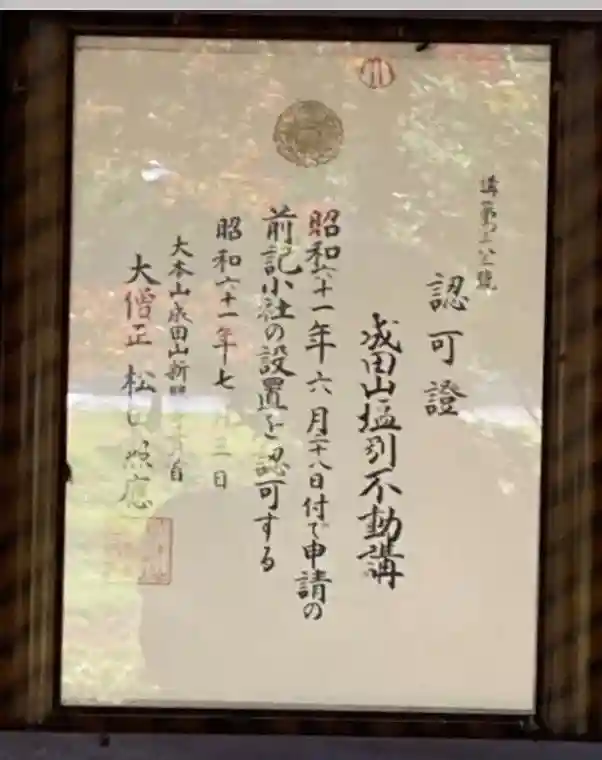 講第
認可證
成田山塩別不動講
昭和六十一年六月二十八日付で申請の
前記小社の設置を認可する
昭和六十一年七月三日
大本山成田山新勝寺貫首
大僧正 松田照應